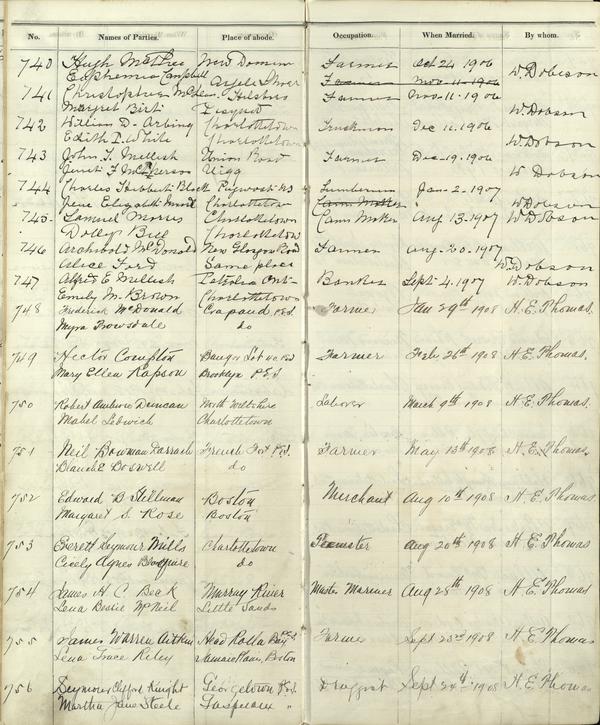 No. Names of Parties. Place of abode. Occupation. When Married. By whom.
740 Hugh Farmer Oct 24 1906
Euphemia Campbell Argyle Shore Farmer Nov 11 1906 W. Dobson
741 Christopher Farmer Nov. 11. 1906
Margret W. Dobson
742 William D. Charlottetown Truckman Dec 11. 1906
Edith White Charlottetown W. Dobson
743 John T. Mellish Union Road Farmer Dec. 19. 1906
Uigg W Dobson
744 Charles Black Lumberman Jan. 2. 1907
Jene Elizabeth Charlottetown W Dobson
745 Samuel Morris Charlottetown Aug 13. 1907 W Dobson
Dolly Bell Charlottetown
746 Archibald McDonald New Glasgow Road Farmer Aug. 20. 1907
Alice Ford Same place W. Dobson
747 Alfred E Mellish Petrolia Ont. Banker Sept. 4. 1907 W. Dobson
Emily M. Brown Charlottetown
748 Frederick McDonald Crapaud P.E.I Farmer Jan 29th 1908 H. E. Thomas.
Myra Trowsdale do
749 Hector Compton Farmer Feby 26th 1908 H. E. Thomas.
Mary Ellen Rapson Brooklyn P.E.I
750 Robert Ambrose Duncan North Wiltshire Laborer March 9th 1908 H. E. Thomas.
Mabel Charlottetown
751 Neil Bowman Darrach French Fort P.E.I. Farmer May 13th 1908 H. E. Thomas.
Blanch E Boswell do
752 Edward B Stillman Boston Merchant Aug 10th 1908 H. E. Thomas
Margaret S. Rose Boston
753 Everett Seymour Mills Charlottetown Teamster Aug 20th 1908 H. E. Thomas
Cicely Agnes do
754 James H C Beck Murray River Master Mariner Aug 28th 1908 H. E. Thomas
Lena Bessie McNeil Little Sands
755 James Warren Aitken Head Bay P.E.I Farmer Sept 23rd 1908 H. E. Thomas
Lena Grace Riley Jamaica Plains, Boston
756 Seymour Clifford Knight Georgetown P.E.I. Druggist Sept 24th 1908 H. E. Thomas
Martha Jane Steele Gaspereaux "